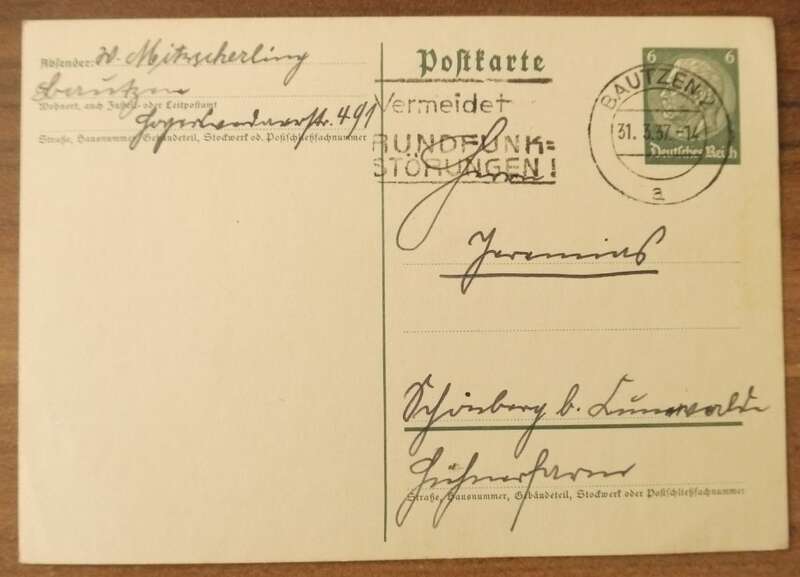 Absender: W. Mitzscherling
Bautzen
Wohnort, auch Zustell- oder Leitpostamt
str. 491
Straße, Hausnummer, Gebäudeteil, Stockwerk od. Postschließfachnummer
Postkarte
Vermeidet
RUNDFUNK=
STÖRUNGEN!
6 6
Deutsches Reich
BAUTZEN 2
31.3.37.-14
a
Herrn
Jeremias
Schönberg b. Cunewalde
Hühnerfarm
Straße, Hausnummer, Gebäudeteil, Stockwerk oder Postschließfachnummer